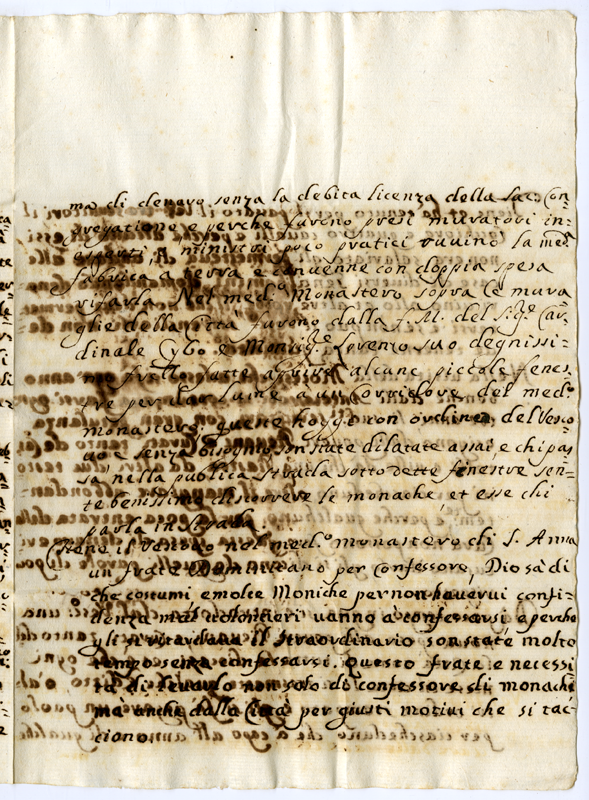 ma di denaro senza la debita licenza della Sac. Con-
gregatione e perche furono presi muratori in-
esperti, e ministri poco pratici ruuinò la med.ª
fabrica a terra, e conuenne con doppia spesa
rifarla. Nel med.º Monastero sopra le mura
glie della Città furono dalla f. M. del Sig.r Car-
dinale Cybo e Monsig.r Lorenzo suo degnissi-
mo frello fatte aprire alcune piccole fenes
tre per dar lume a un Corridore del med.º
monastero, queste hoggi con ordine del Vesco
uo e senza bisogno son state dilatate assai, e chi pas
sa nella publica strada sotto dette fenestre sen-
te benissimo discorrere le monache, et esse chi
parla in strada.
Tiene il Vescouo nel med.º monastero di S. Anna
un frate Domenicano per Confessore, Dio sà di
che costumi e molte Moniche per non hauerui confi-
denza mal uolontieri uanno a confessarsi, e perche
gli si ritardaua il straordinario son state molto
tempo senza confessarsi. Questo frate e necessi
tà di leuarlo non solo di confessore di monache
ma anche dalla Città per giusti motiui che si tac-
ciono.